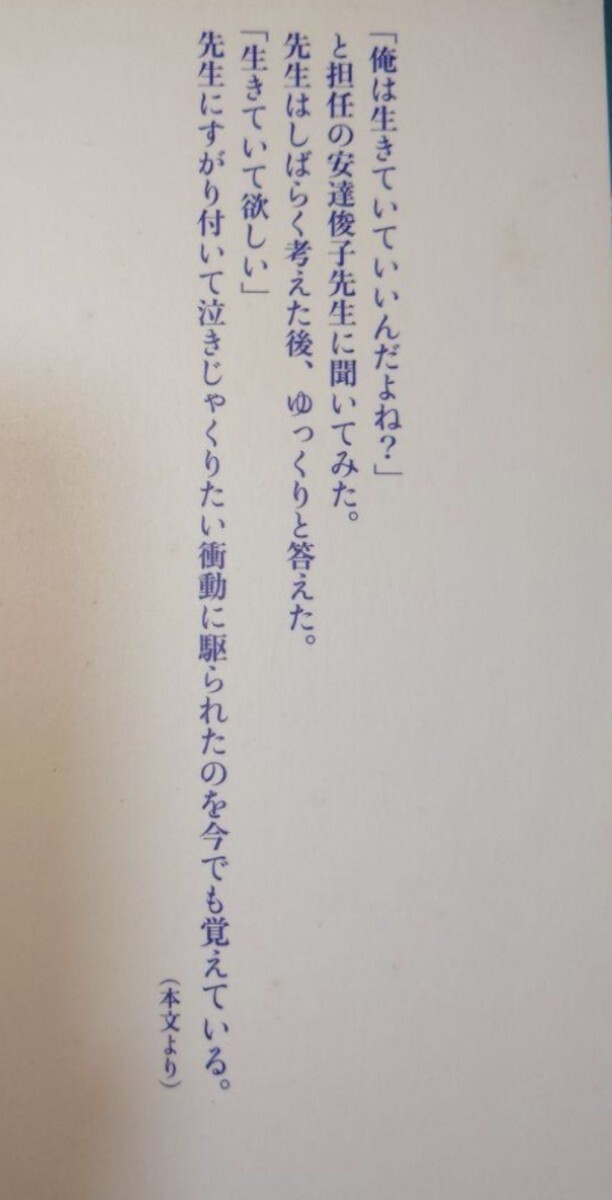 「俺は生きていていいんだよね？」
と担任の安達俊子先生に聞いてみた。
先生はしばらく考えた後、ゆっくりと答えた。
「生きていて欲しい」
先生にすがり付いて泣きじゃくりたい衝動に駆られたのを今でも覚えている。
（本文より）